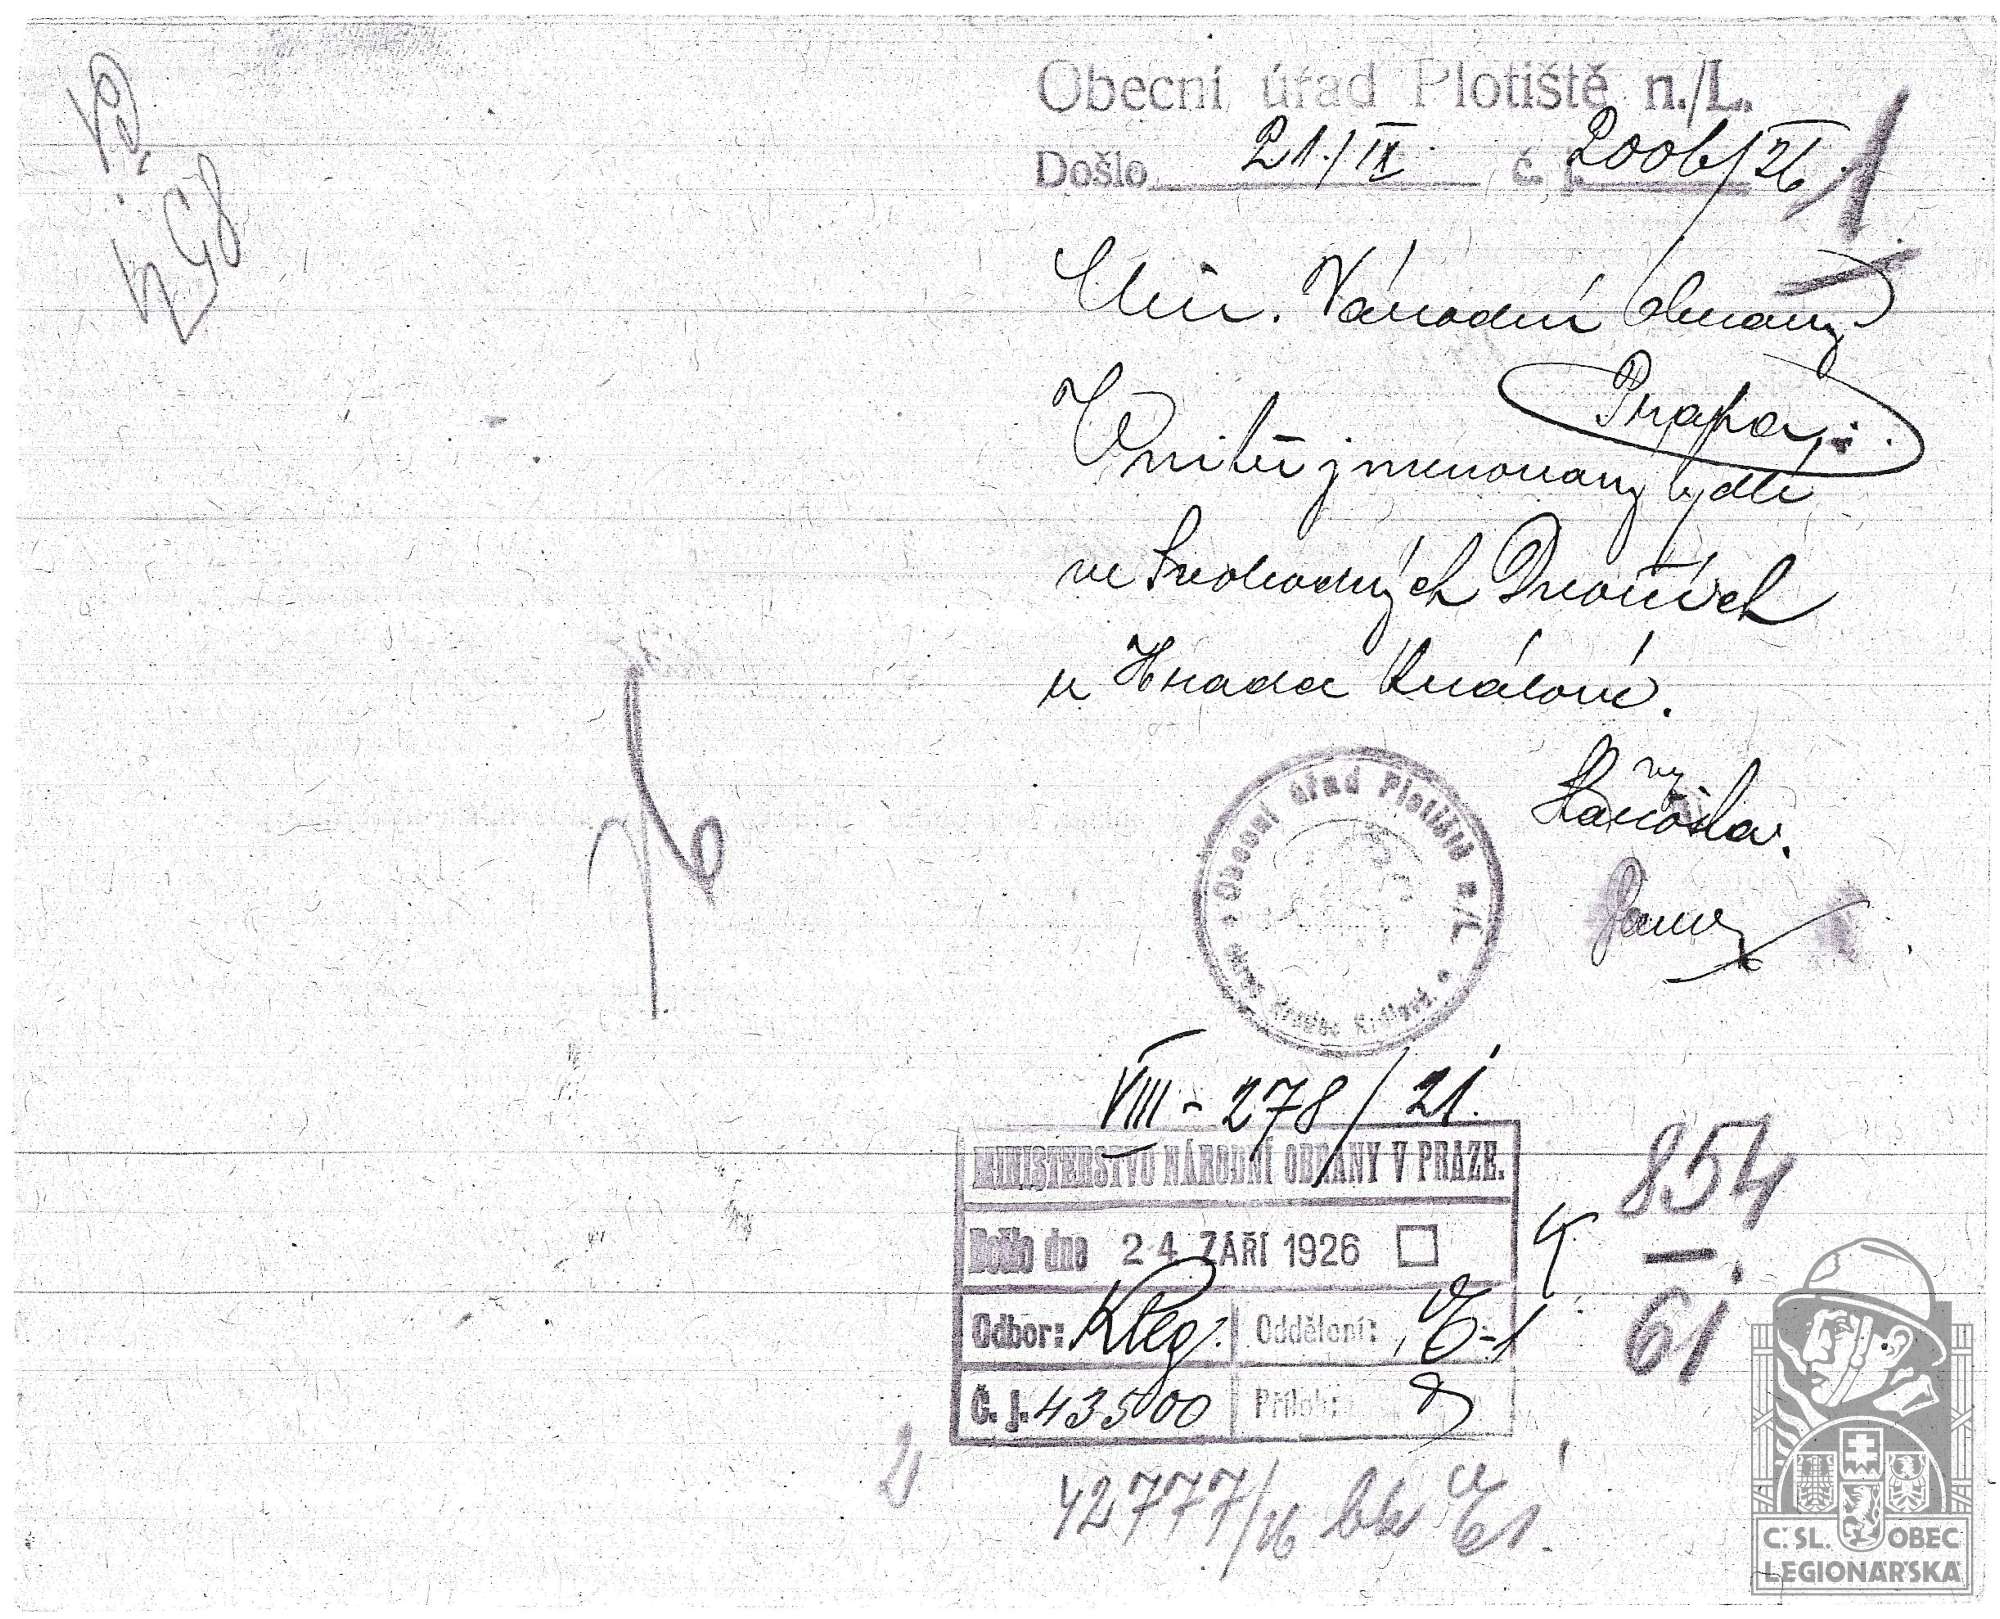 Obecní úřad Plotiště n./L.
Došlo 21./IX. č. j. 2006/26
1
Min. Národní obrany
Praha.
Vnitř jmenovaný bydlí
ve Svobodných Dvořích
u Hradce Králové.
Obecní úřad Plotiště n./L.
okres Hradec Králové
VIII - 278/21.
MINISTERSTVO NÁRODNÍ OBRANY V PRAZE.
Došlo dne 24. ZÁŘÍ 1926
Odbor: Kleg. Oddělení:
Č. j. 43500 Příloh:
854
61
42777/26
Č. SL. OBEC
LEGIONÁŘSKÁ